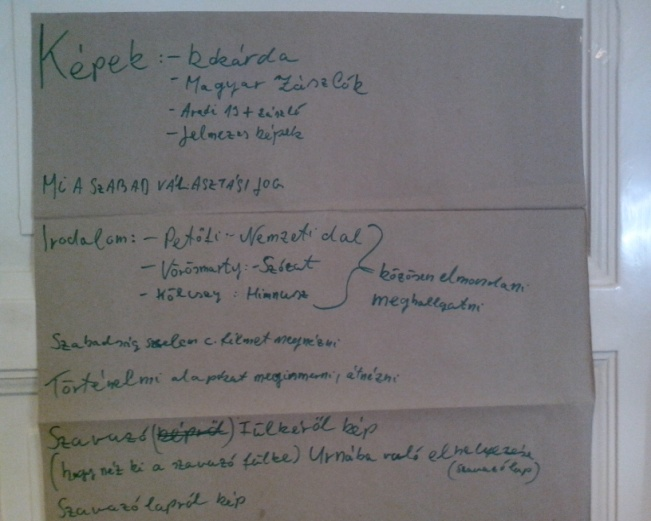 Képek: - kokárda
- Magyar Zászlók
- Aradi 13 + zászló
- Jelmezes képek
Mi A SZABAD VÁLASZTÁSI JOG
Irodalom: - Petőfi - Nemzeti dal
- Vörösmarty: - Szózat
- Kölcsey: Himnusz
közösen elmondani
meghallgatni
Szabadság szelem c. filmet megnézni
Történelmi alapokat megismerni, átnézni
Szavazó (képről) Fülkéről kép
(hogy néz ki a szavazó fülke) Urnába való elhelyezése
(szavazólap)
Szavazólapról kép